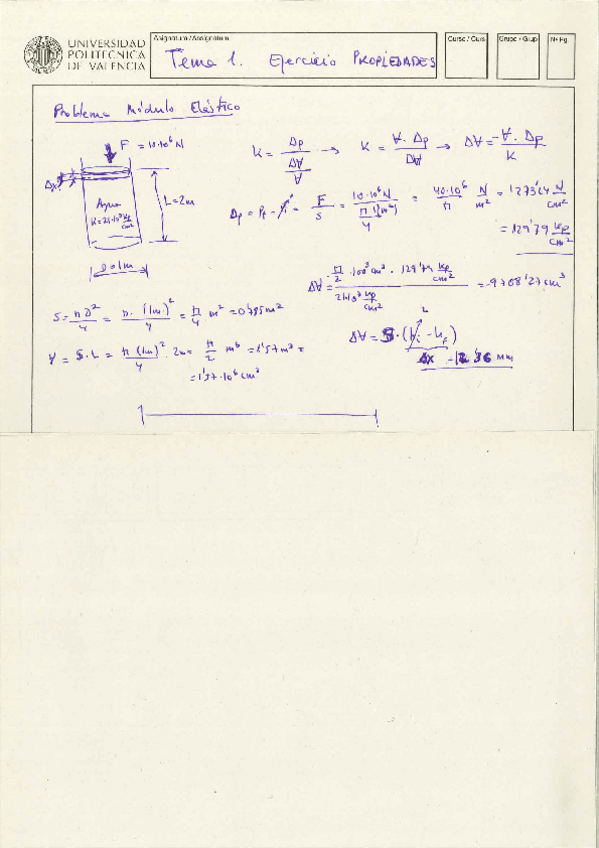 UNIVERSIDAD
POLITECNICA
DE VALENCIA
Asignatura/Assignatura
Tema 1. Ejercicio PROPIEDADES
Curso / Curs
Grupo - Grup
Nº Pg.
Problema Módulo Elástico
F = 10·10⁶ N
Δx
Agua
L = 2m
D = 1m
K = Δp / (ΔV/V) → K = V·Δp / ΔV → ΔV = -V·Δp / K
Δp = Pf - Pi = F/S = 10·10⁶ N / (π/4 (1m²)) = 40·10⁶/π N/m² = 1273'24 N/cm²
= 129'79 kp/cm²
ΔV = π/2 · 100³ cm³ · 129'79 kp/cm² / 21·10³ kp/cm² = -9708'27 cm³
S = πD²/4 = π·(1m)²/4 = π/4 m² = 0'785 m²
ΔV = S·(hi - hf)
Δx = 12'36 mm
V = S·L = π (1m)²/4 · 2m = π/2 m³ = 1'57 m³ =
= 1'57·10⁶ cm³